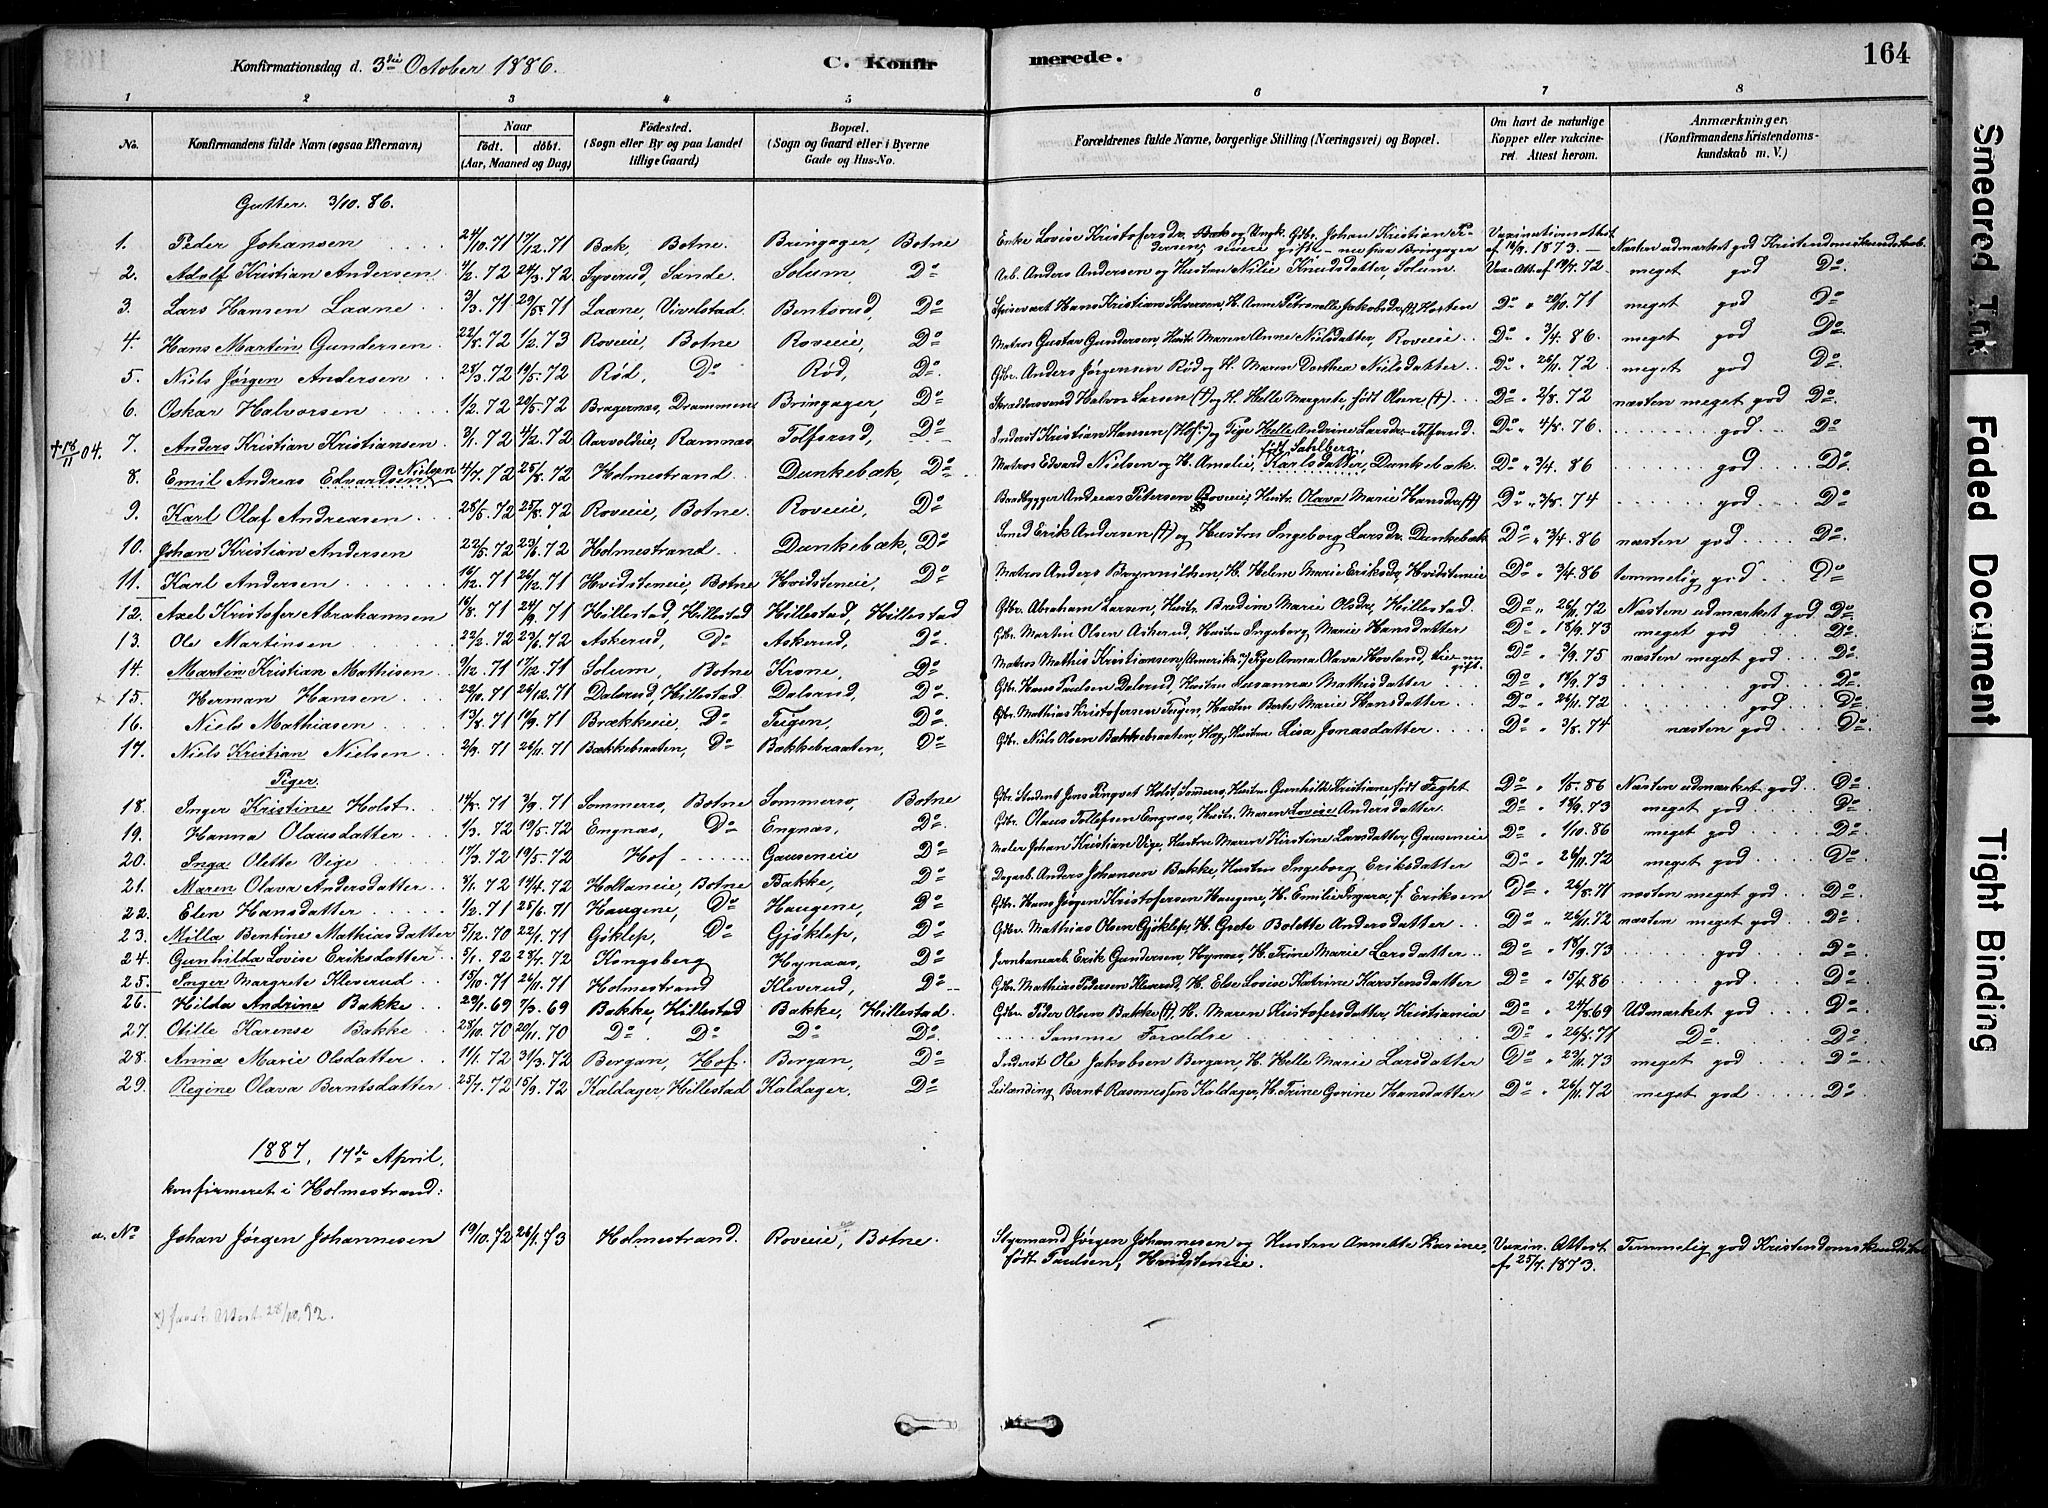 Konfirmationsdag d. 3die October 1886. C. Konfirmerede. 164
1 2 3 4 5 6 7 8
No. Konfirmandens fulde Navn (ogsaa Efternavn) Naar födt. döbt. (Aar, Maaned og Dag) Födested. (Sogn eller By og paa Landet tillige Gaard) Bopæl. (Sogn og Gaard eller i Byerne Gade og Hus-No. Forældrenes fulde Navne, borgerlige Stilling (Næringsvei) og Bopæl. Om havt de naturlige Kopper eller vakcineret Attest herom. Anmærkninger. (Konfirmandens Kristendomskundskab m. V.)
Gutter. 3/10. 86.
1. Peder Johansen 24/10.71 17/12.71 Bæk, Botne. Bringager, Botne Enke Lovise Kristofersdr. Bæk og Ungk. Gbr. Johan Kristian Pedersen, senere gifte Bringager Vaxinationsattest af 16/9 1873. Næsten udmærket god Kristendomskundskab.
2. Adolf Kristian Andersen 4/2.72 24/3.72 Syverud, Sande. Solum, Do Arb. Anders Andersen og Hustru Nilie Knudsdatter, Solum. Vax. Att. af 19/7.72 meget god Do
3. Lars Hansen Laane 3/3.71 29/5.71 Laane, Vivelstad. Bentsrud, Do Hans Kristian Solversen, H. Anne Petronelle Jakobsdr (+) Horten Do " 20/10.71 meget god Do
4. Hans Martin Gundersen 22/8.72 1/2.73 Roveie, Botne Roveie, Do Matros Gustav Gundersen, Hustr. Maren Anne Nielsdatter, Roveie Do " 3/4.86. meget god Do
5. Niels Jørgen Andersen 28/3.72 19/5.72 Rød, Do Rød, Do Gbr. Anders Jørgensen Rød og H. Maren Dorthea Nielsdatter Do " 26/11.72 meget god Do
6. Oskar Halvorsen 1/2.72 20/5.72 Bragernæs, Drammen Bringager, Do Skræddersvend Halvor Larsen (+) og H. Helle Margrete, født Olsen (+) Do " 2/8.72 næsten meget god Do
+ 18/11 04. 7. Anders Kristian Kristiansen 3/1.72 4/2.72 Aarvoldeie, Ramnæs Tolfsrud, Do Inderst Kristian Hansen (Hof) og Pige Helle Andrine Larsdr. Tolfsrud. Do " 4/8.76. god Do
8. Emil Andreas Edvardsen Nielsen 4/7.72 25/8.72 Holmestrand Dunkebæk, Do Matros Edvard Nielsen og H. Amalie, Karlsdatter, født Sahlberg, Dunkebæk. Do " 3/4.86 god Do
9. Karl Olaf Andreasen 28/5.72 25/8.72 Roveie, Botne. Roveie, Do Baadbygger Andreas Petersen Roveie, Hustr. Olava Marie Hansdr (+) Do " 3/8.74 god Do
10. Johan Kristian Andersen 22/5.72 23/6.72 Holmestrand Dunkebæk, Do Smed Erik Andersen (+) og Hustru Ingeborg Larsdr. Dunkebæk Do " 3/4.86 næsten god Do
11. Karl Andersen 16/12.71 26/12.71 Hvidsteneie, Botne Hvidsteneie, Do Matros Anders Brynnildsen, H. Helene Marie Eriksdr, Hvidsteneie Do " 3/4.86 temmelig god Do
12. Axel Kristofer Abrahamsen 16/8.71 24/9.71 Hillestad, Hillestad Hillestad, Hillestad Gbr. Abraham Larsen, Hustr. Bredine Marie Olsdr, Hillestad. Do " 26/11.72 Næsten udmærket god Do
13. Ole Martinsen 22/2.72 23/6.72 Askerud, Do Askerud, Do Gbr. Martin Olsen Askerud, Hustru Ingeborg Marie Hansdatter Do " 18/9.73 meget god Do
14. Martin Kristian Mathisen 9/12.71 17/12.71 Solum, Botne Krone, Do Matros Mathis Kristiansen (Amerika) Pige Anna Olava Hovland, gift. Do " 3/9.75 næsten meget god Do
15. Herman Hansen 22/10.71 26/12.71 Dalsrud, Hillestad Dalsrud, Do Gbr. Hans Paulsen Dalsrud, Hustru Susanna Mathisdatter Do " 18/9.73 god Do
16. Niels Mathiasen 13/8.71 10/9.71 Brækkeeie, Do Teigen, Do Gbr. Mathias Kristofersen Teigen, Hustru Berte Marie Hansdatter Do " 26/11.72 god Do
17. Niels Kristian Nielsen 2/9.71 26/11.71 Bækkebraaten, Do Bakkebraaten, Do Gbr. Niels Olsen Bakkebraaten, Hustru Lisa Jonasdatter Do " 3/8.74 næsten god Do
Piger.
18. Inger Kristine Holst. 14/8.71 3/9.71 Sommerro, Botne Sommerro, Botne Gbr. Student Jens Holst, Sommerro, Hustru Gunhilde Kristiane født Feght Do " 1/5.86 Næsten udmærket god Do
19. Hanna Olausdatter 1/3.72 19/5.72 Engnæs, Do Engnæs, Do Gbr. Olaus Tollefsen Engnæs, Hustr. Maren Lovise Andersdatter Do " 18/9.73 meget god Do
20. Inga Olette Vige 17/3.72 19/5.72 Hof Gauseneie Do Maler Johan Kristian Vige, Hustru Maren Kristine Larsdatter, Gauseneie Do " 1/10.86 meget god Do
21. Maren Olava Andersdatter 3/1.72 14/4.72 Holtaneie, Botne Bakke, Do Dagarb. Anders Johansen Bakke, Hustru Ingeborg Eriksdatter Do " 26/11.72 meget god Do
22. Elen Hansdatter 1/2.71 25/6.71 Haugene, Do Haugene, Do Gbr. Hans Jørgen Kristofersen Haugene, H. Emilie, f. Eriksen Do " 26/8.71 næsten meget god Do
23. Milla Bentine Mathiasdatter 5/12.70 22/1.71 Gjøklep, Do Gjøklep, Do Gbr. Mathias Olsen Gjøklep, H. Grete Bolette Andersdatter Do " 26/11.72 næsten meget god Do
24. Gunhilda Lovise Eriksdatter x 5/1.72 28/4.72 Kongsberg Hynaas, Do Jernbanearb. Erik Gundersen, Hynaas, H. Trine Marie Larsdatter Do " 18/9.73 god Do
25. Inger Margrete Kleverud 15/10.71 26/11.71 Holmestrand Kleverud, Do Gbr. Mathias Petersen Kleverud, H. Else Lovise Katrine Karstensdatter Do " 15/4.86 god Do
26. Hilda Andrine Bakke 29/1.69 7/3.69 Bakke, Hillestad Bakke, Hillestad. Gbr. Peder Olsen Bakke (+), H. Maren Kristofersdatter, Kristiania Do " 24/8.69 Udmærket god Do
27. Otille Karense Bakke 28/10.70 20/11.70 Do Do Do Do Samme Forældre Do " 26/8.71 Do Do
28. Anna Marie Olsdatter 11/1.72 31/3.72 Bergan, Hof. Bergan, Do Inderst Ole Jakobsen Bergan, H. Helle Marie Larsdatter Do " 23/11.73 meget god Do
29. Regine Olava Berntsdatter 25/7.72 15/9.72 Kaldager, Hillestad Kaldager, Do Leilænding Bernt Rasmussen Kaldager, H. Trine Gurine Hansdatter Do " 26/11.72 meget god Do
1887, 17de April,
konfirmeret i Holmestrand:
a. No Johan Jørgen Johannesen 19/10.72 26/1.73 Holmestrand. Roveie, Botne. Styrmand Jørgen Johannesen og Hustru Annette Karine, Vaxin. Attest Temmelig god Kristendomskundskab
født Paulsen, Hvidsteneie. af 25/7. 1873.
x) Attest 28/10.92.
Smeared Ink
Faded Document
Tight Binding